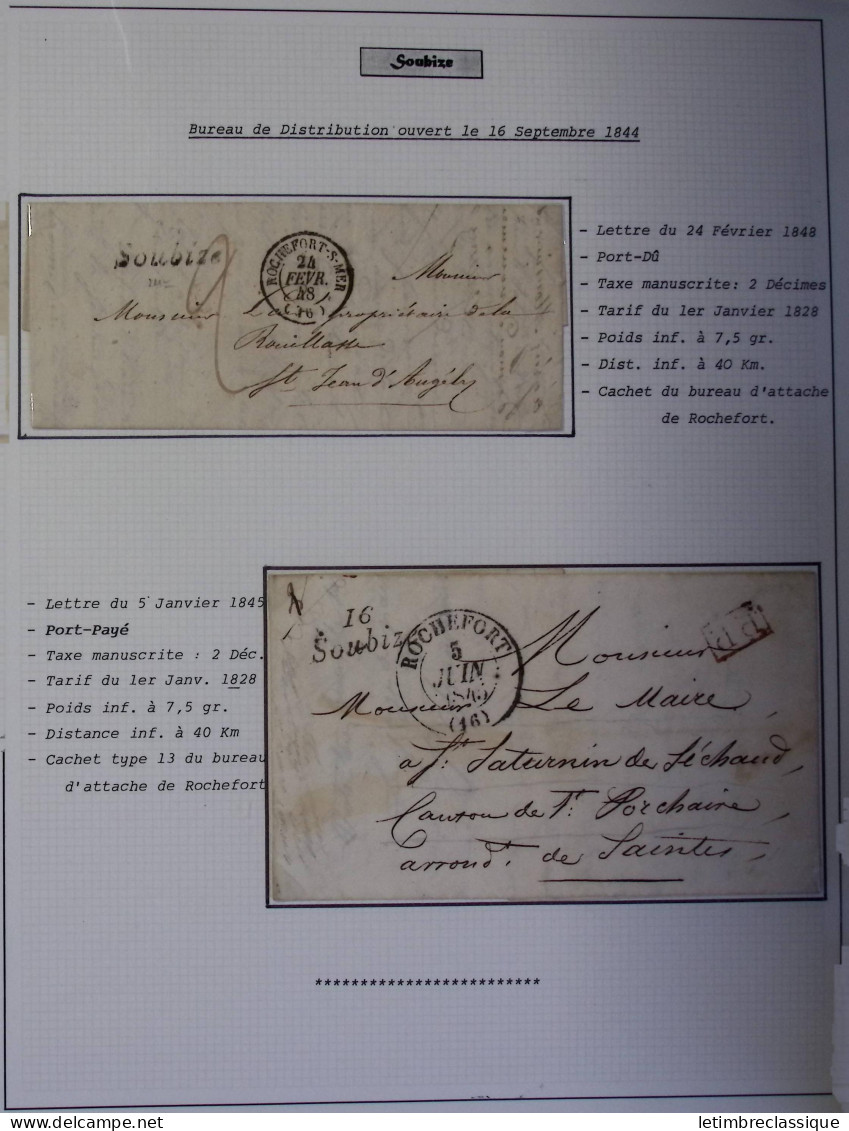 Soubize
Bureau de Distribution ouvert le 16 Septembre 1844
Soubize
ROCHEFORT-S-MER
24
FEVR.
48
(16)
Monsieur
Monsieur propriétaire de la
Rouillasse
St Jean d'Angély
- Lettre du 24 Février 1848
- Port-Dû
- Taxe manuscrite: 2 Décimes
- Tarif du 1er Janvier 1828
- Poids inf. à 7,5 gr.
- Dist. inf. à 40 Km.
- Cachet du bureau d'attache
de Rochefort.
- Lettre du 5 Janvier 1845
- Port-Payé
- Taxe manuscrite : 2 Déc.
- Tarif du 1er Janv. 1828
- Poids inf. à 7,5 gr.
- Distance inf. à 40 Km
- Cachet type 13 du bureau
d'attache de Rochefort
16
Soubiz
ROCHEFORT
5
JUIN
(16)
P.P.
Monsieur
Monsieur Le Maire
à St: Saturnin de Séchaud,
Canton de St: Porchaire,
arrond.t de Saintes,
*************************
delcampe.net
letimbreclassique